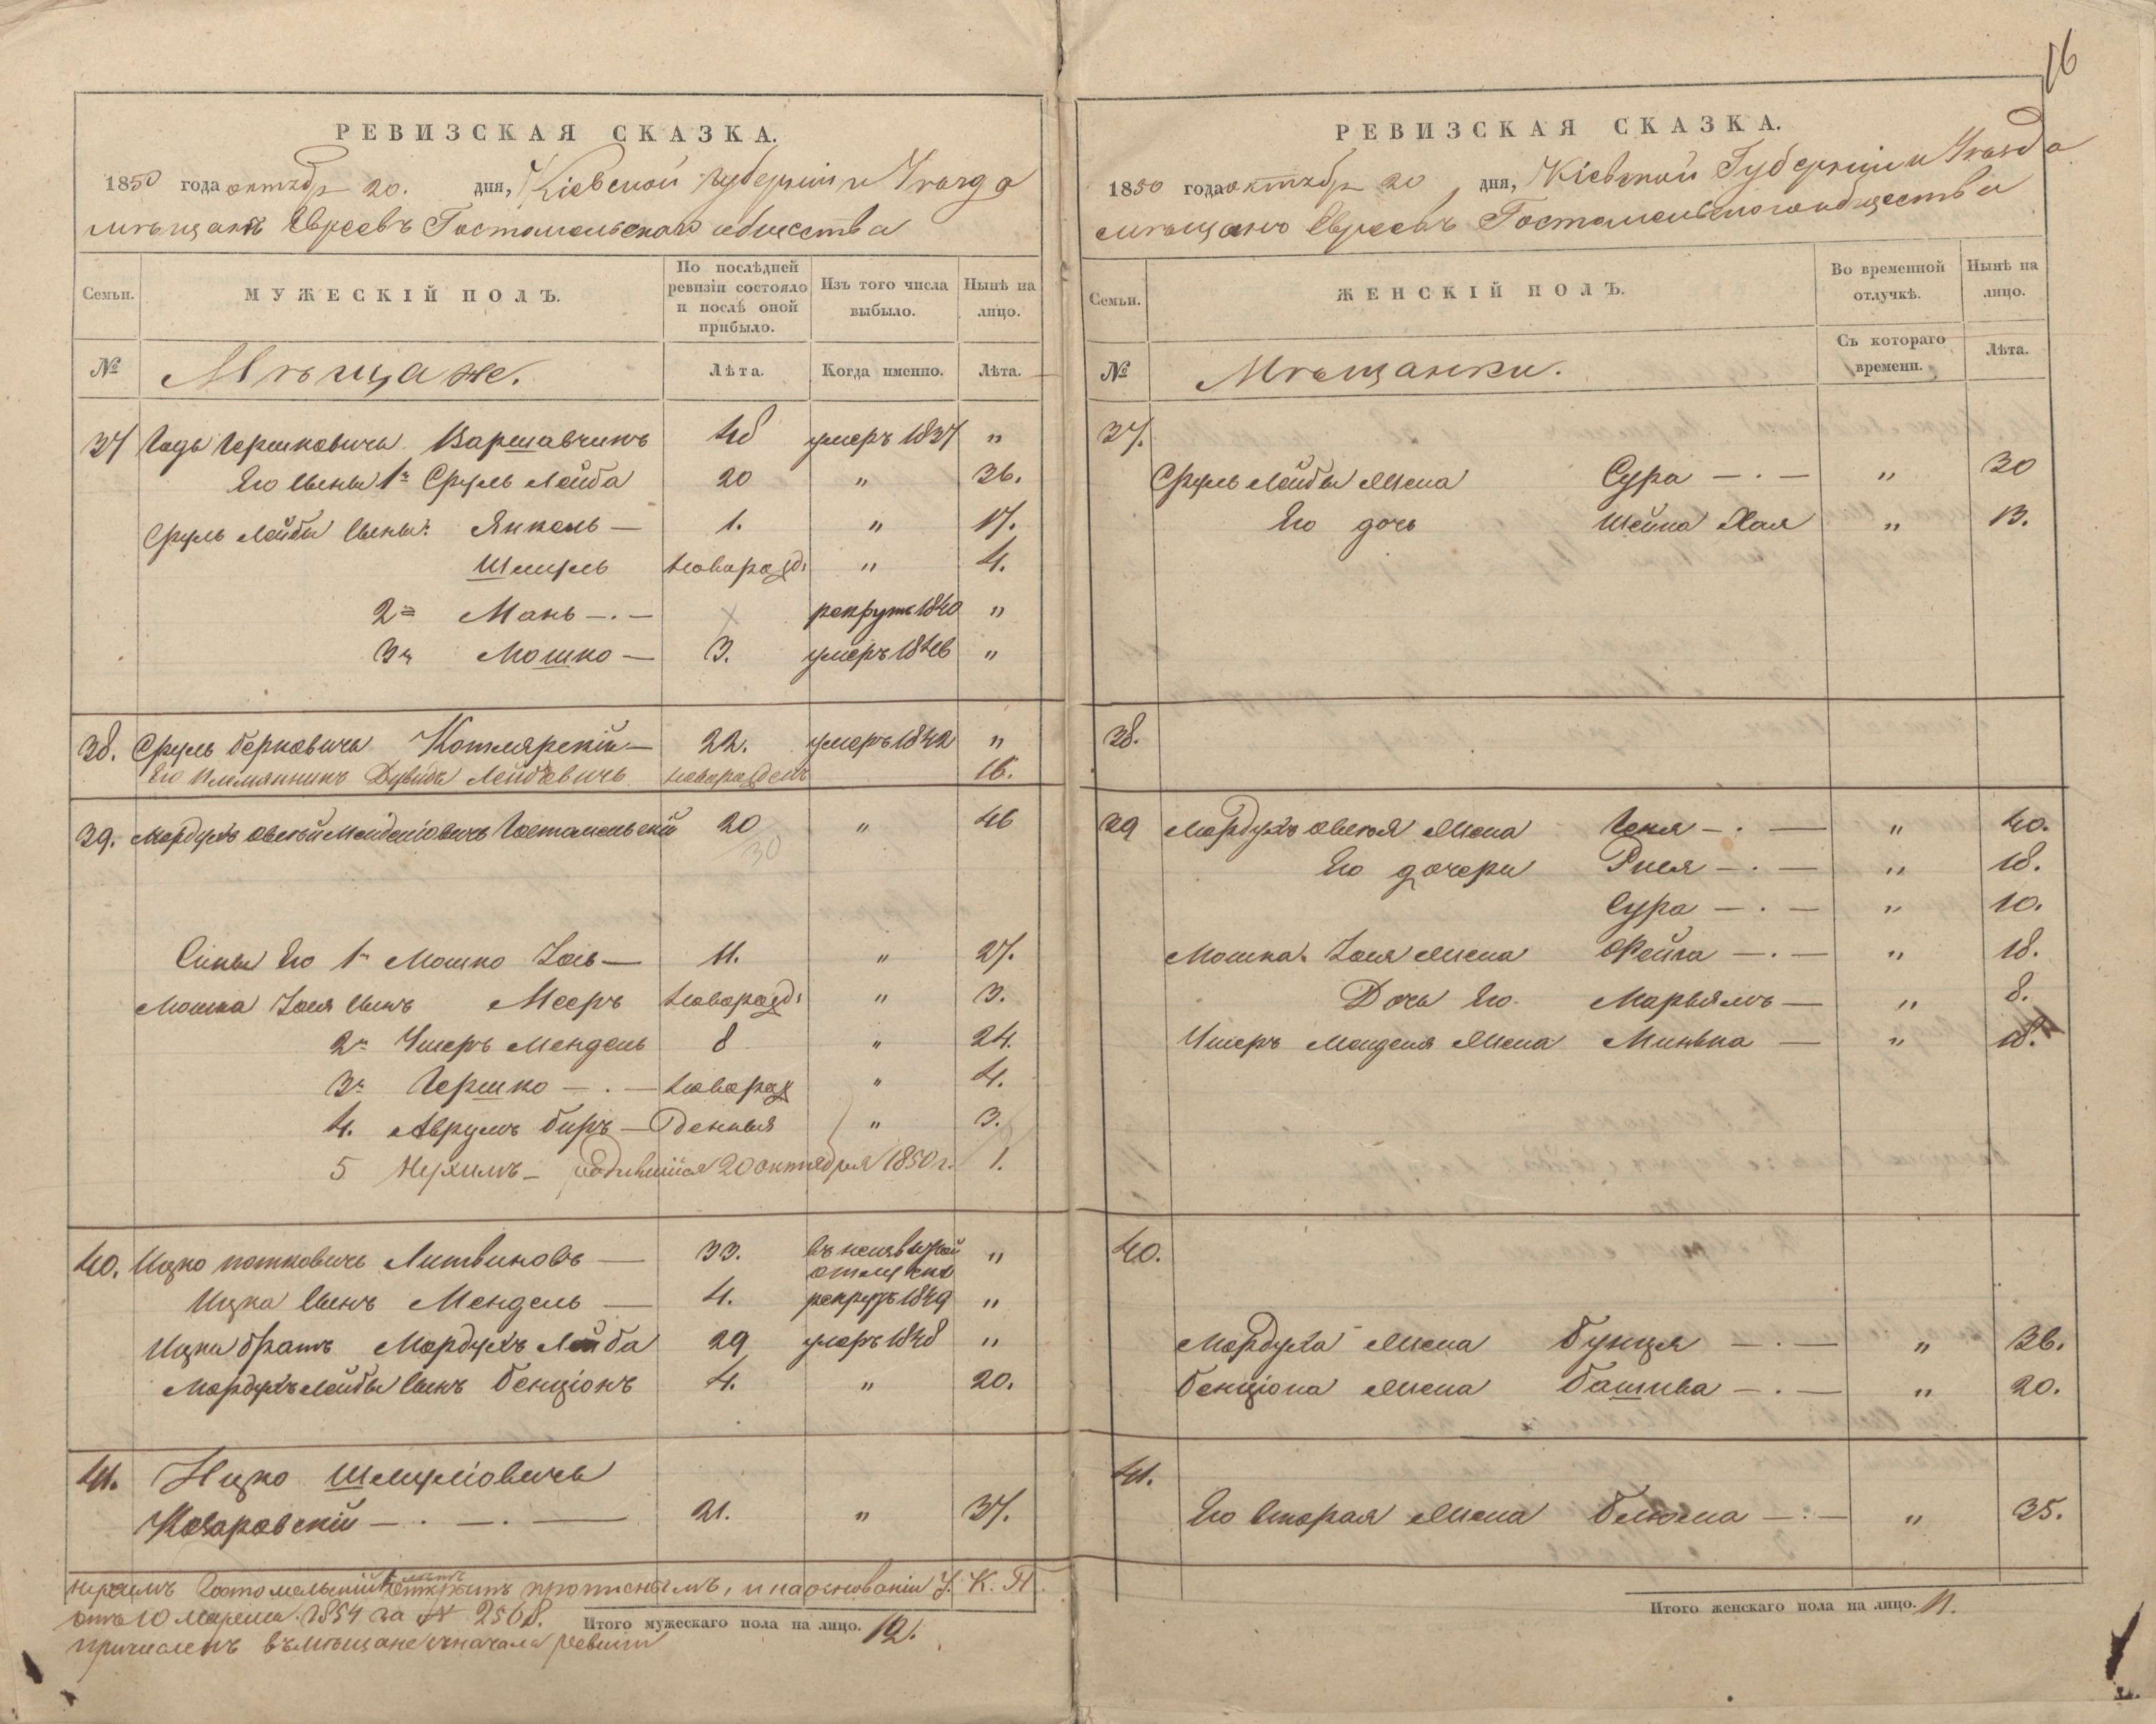 16
РЕВИЗСКАЯ СКАЗКА.
1850 года октябр 20. дня, Кіевской губерніи и Уѣзда
мѣщанъ Евреевъ Гостомельскаго общества
Семьи. МУЖЕСКІЙ ПОЛЪ. По послѣдней ревизіи состояло и послѣ оной прибыло. Изъ того числа выбыло. Нынѣ на лицо.
№ Мѣщане. Лѣта. Когда именно. Лѣта.
37 Гадь Гершковичъ Варшавчикъ 48 умеръ 1837 "
Его сыны 1й Сруль Лейба 20 " 36.
Сруль Лейбы сыны: Янкель — 1. " 17.
Шмуль новорожд: " 4.
2й Мань —.— рекрутъ 1840 "
3й Мошко — 3. умеръ 1846 "
38. Сруль Берковичъ Котлярскій — 22. умеръ 1842 "
Его племянникъ Дувидъ Лейбовичъ новорожден 16.
39. Мордухъ Овсей Менделіовичъ Гостомельскій 20 " 46
30
Сыны Его 1й Мошко Іось — 11. " 27.
Мошка Іося сынъ Мееръ новорожд: " 3.
2й Ушеръ Мендель 8 " 24.
3й Гершко —.— новорож " 4.
4. Аврумъ Биръ — денныя " 3.
5 Нухимъ — родившійся 20 октября 1850 г. 1.
40. Ицко Литвиновъ — 33. въ неизвѣстной отлучкѣ "
Ицка сынъ Мендель — 4. рекрутъ 1849 "
Ицка братъ Мордухъ Лейба 29 умеръ 1848 "
Мордухъ Лейбы сынъ Бенціонъ 4. " 20.
41. Ицко Шмуліовичъ
Комаровскій —.—.— 21. " 37.
Нухимъ Гостомельскій прописнымъ, и на основаніи У. К. П.
отъ 10 Марта 1854 за № 2568.
причисленъ въ мѣщане съ начала ревизіи
Итого мужескаго пола на лицо. 12.
РЕВИЗСКАЯ СКАЗКА.
1850 года октябр 20 дня, Кіевской Губерніи и Уѣзда
мѣщанъ Евреевъ Гостомельскаго общества
Семьи. ЖЕНСКІЙ ПОЛЪ. Во временной отлучкѣ. Нынѣ на лицо.
№ Мѣщанки. Съ котораго времени. Лѣта.
37.
Сруль Лейбы жена Сура —.— " 30
Его дочь Шейна Хая " 13.
38.
39 Мордухъ Овсея жена Геня —.— " 40.
Его дочери Рися —.— " 18.
Сура —.— " 10.
Мошка Іося жена Фейга —.— " 18.
Дочь Его Марьямъ — " 8.
Ушеръ Менделя жена Минька — " 18.
40.
Мордуха жена Бунця —.— " 36.
Бенціона жена Башива —.— " 20.
41.
Его вторая жена Блюма —.— " 35.
Итого женскаго пола на лицо. 11.